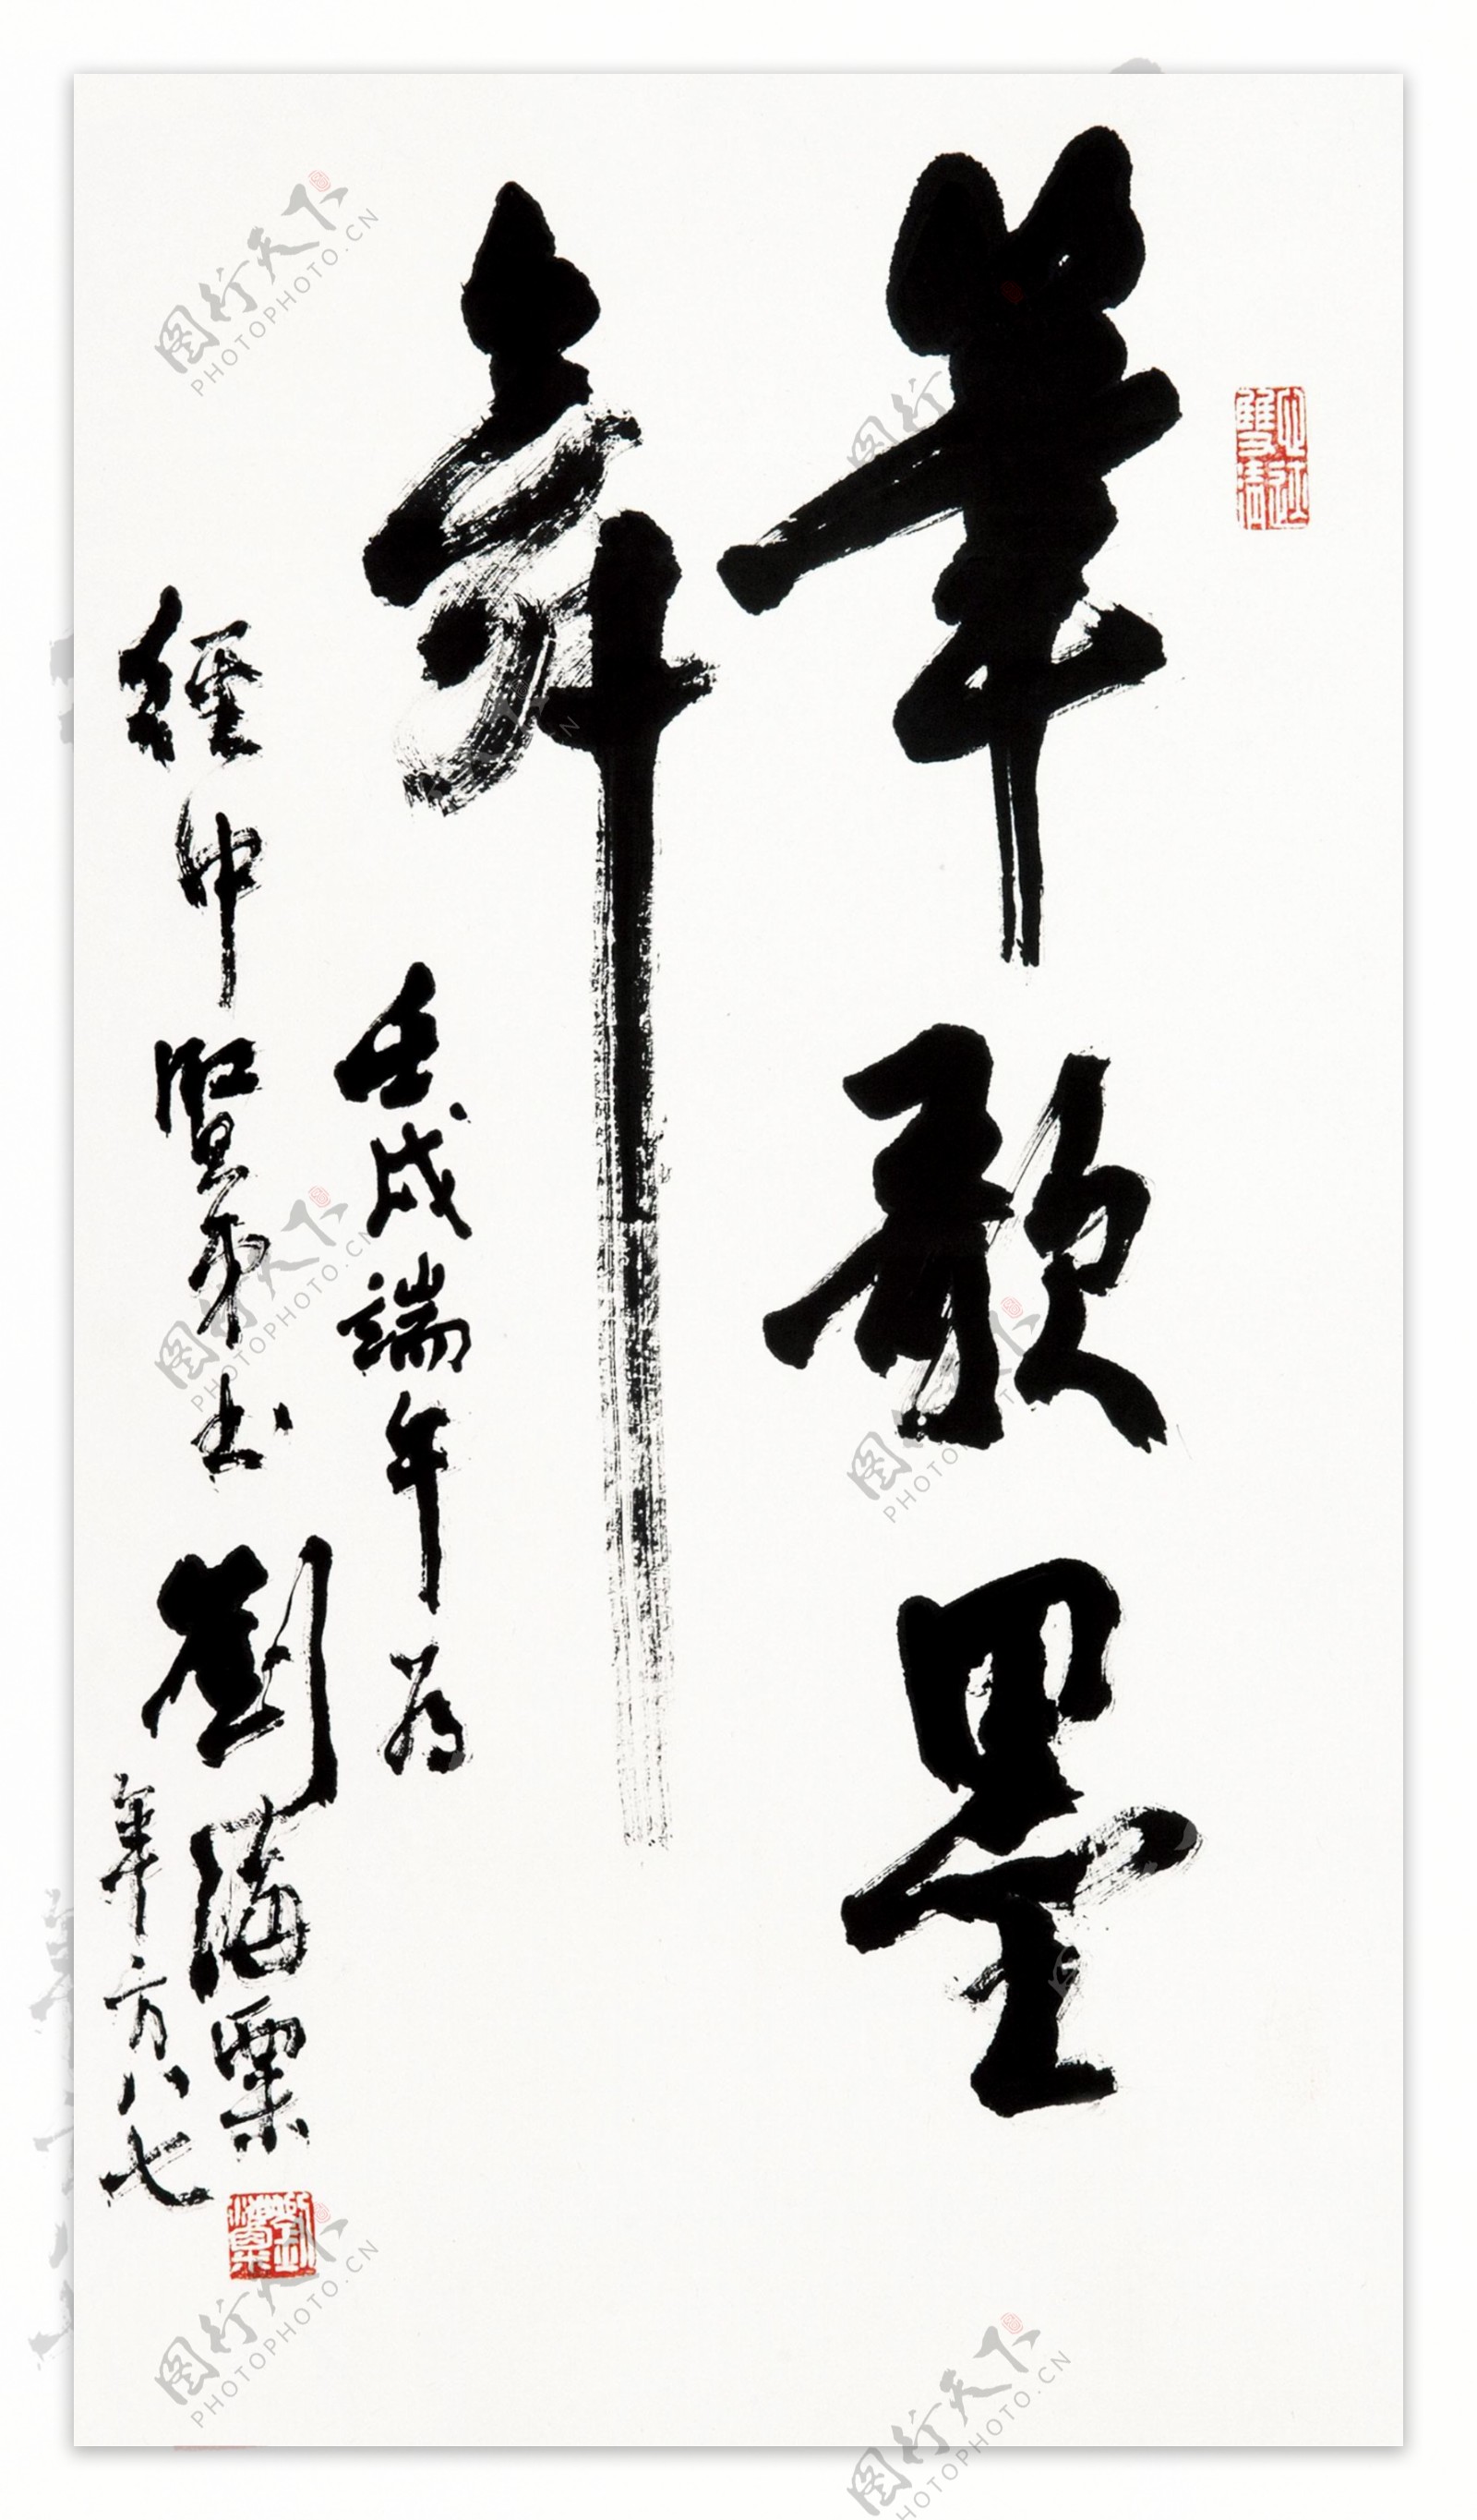 筆歌墨
舞
壬戌端午为
經中賢弟出
劉海粟
年方八七
劉海粟
图行天下
PHOTOPHOTO.CN